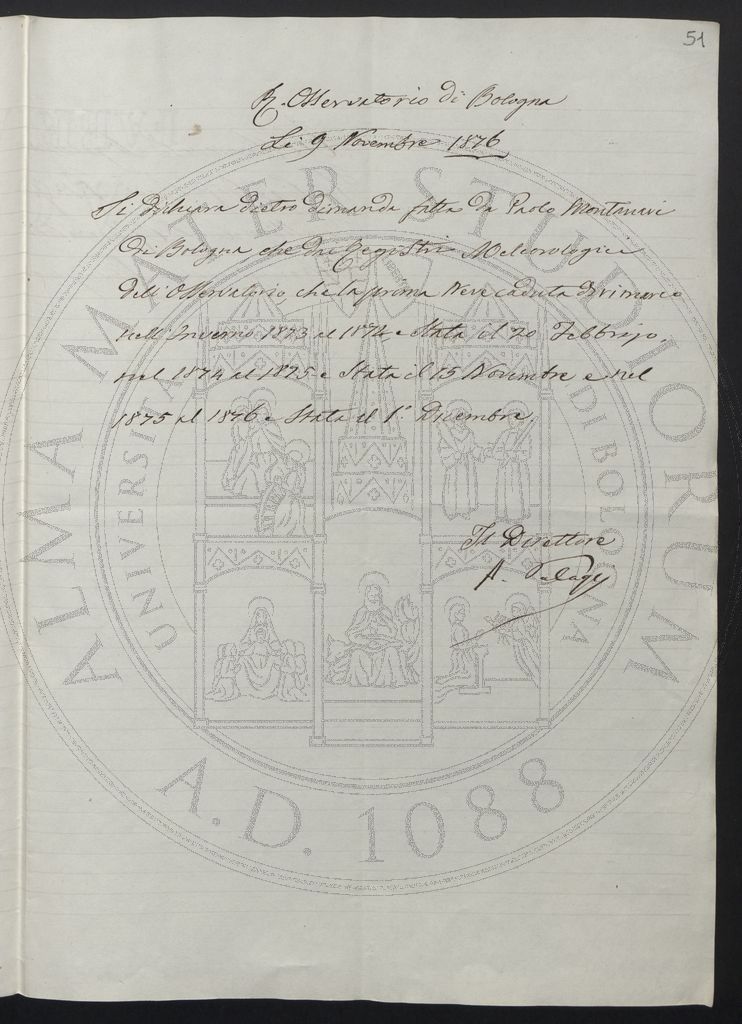 51
R. Osservatorio di Bologna
Li 9 Novembre 1876
Si dichiara dietro dimanda fatta da Paolo Montanari
di Bologna che dai Registri Meteorologici
dell'Osservatorio, che la prima Neve caduta
nell'Inverno 1873 al 1874 e Stata il 20 Febbrajo,
nel 1874 al 1875 e Stata il 15 Novembre e nel
1875 al 1876 e Stata il 1° Dicembre.
Il Direttore
A. Palagi
ALMA MATER STUDIORUM
UNIVERSITÀ DI BOLOGNA
A.D. 1088